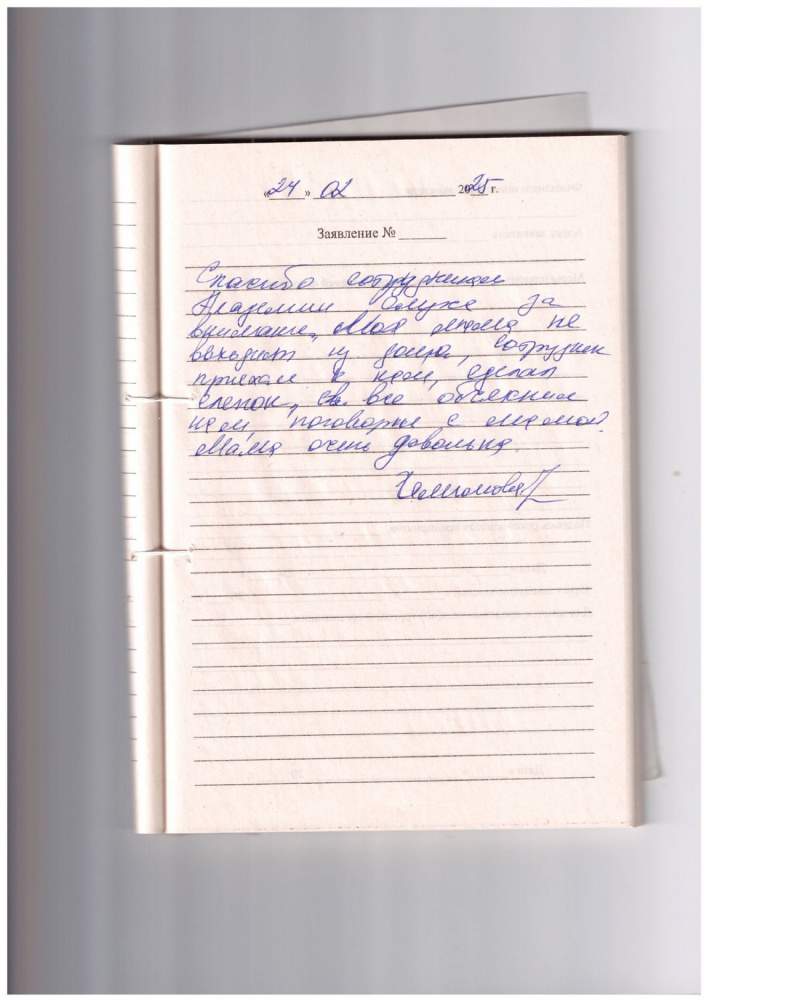 «24» 02 2025 г.
Заявление №
Спасибо сотрудникам
Академии Слуха за
внимание, Моя мама не
выходит из дома, сотрудник
приехал к нам, сделал
слепок, все объяснил
нам, поговорил с мамой.
Мама очень довольна.